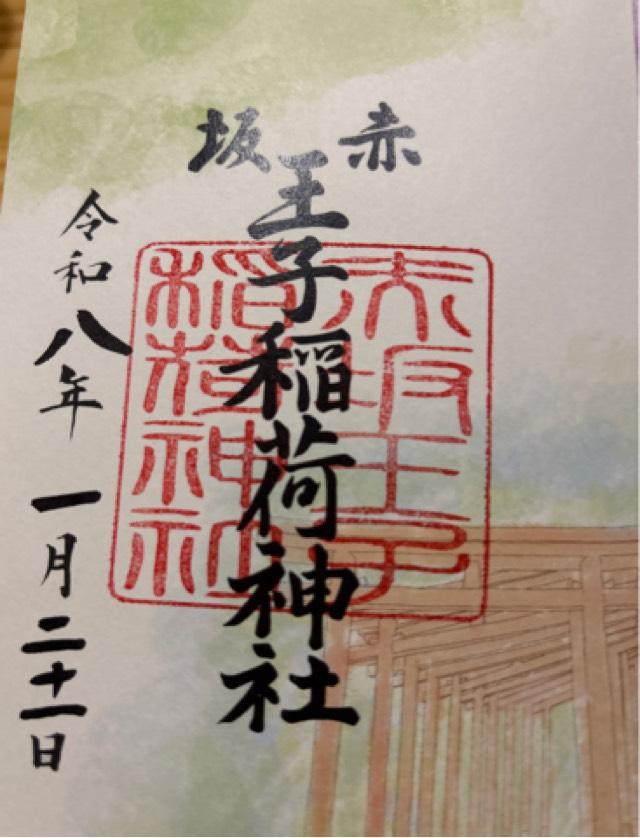 赤坂
王子稲荷神社
令和八年一月二十一日
赤坂王子
稲荷神社